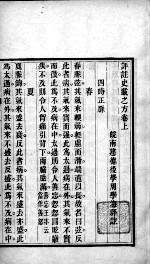 評註史載之方卷上
皖南建德後學周學海評註
四時正脉
春
春脉弦其氣來耎弱輕虛而滑端直以長故名曰弦反
此者病其氣來實而強此為太過病在外其氣來不實
而微此為不及病在中太過則令人善忘忽忽眩冒巔疾
不及則令人胸痛引背下則兩脇胠滿
夏
夏脉鉤其氣來盛去衰反此者病其氣來盛去亦盛此
為太過病在外其氣來不盛去反盛此為不及病在中